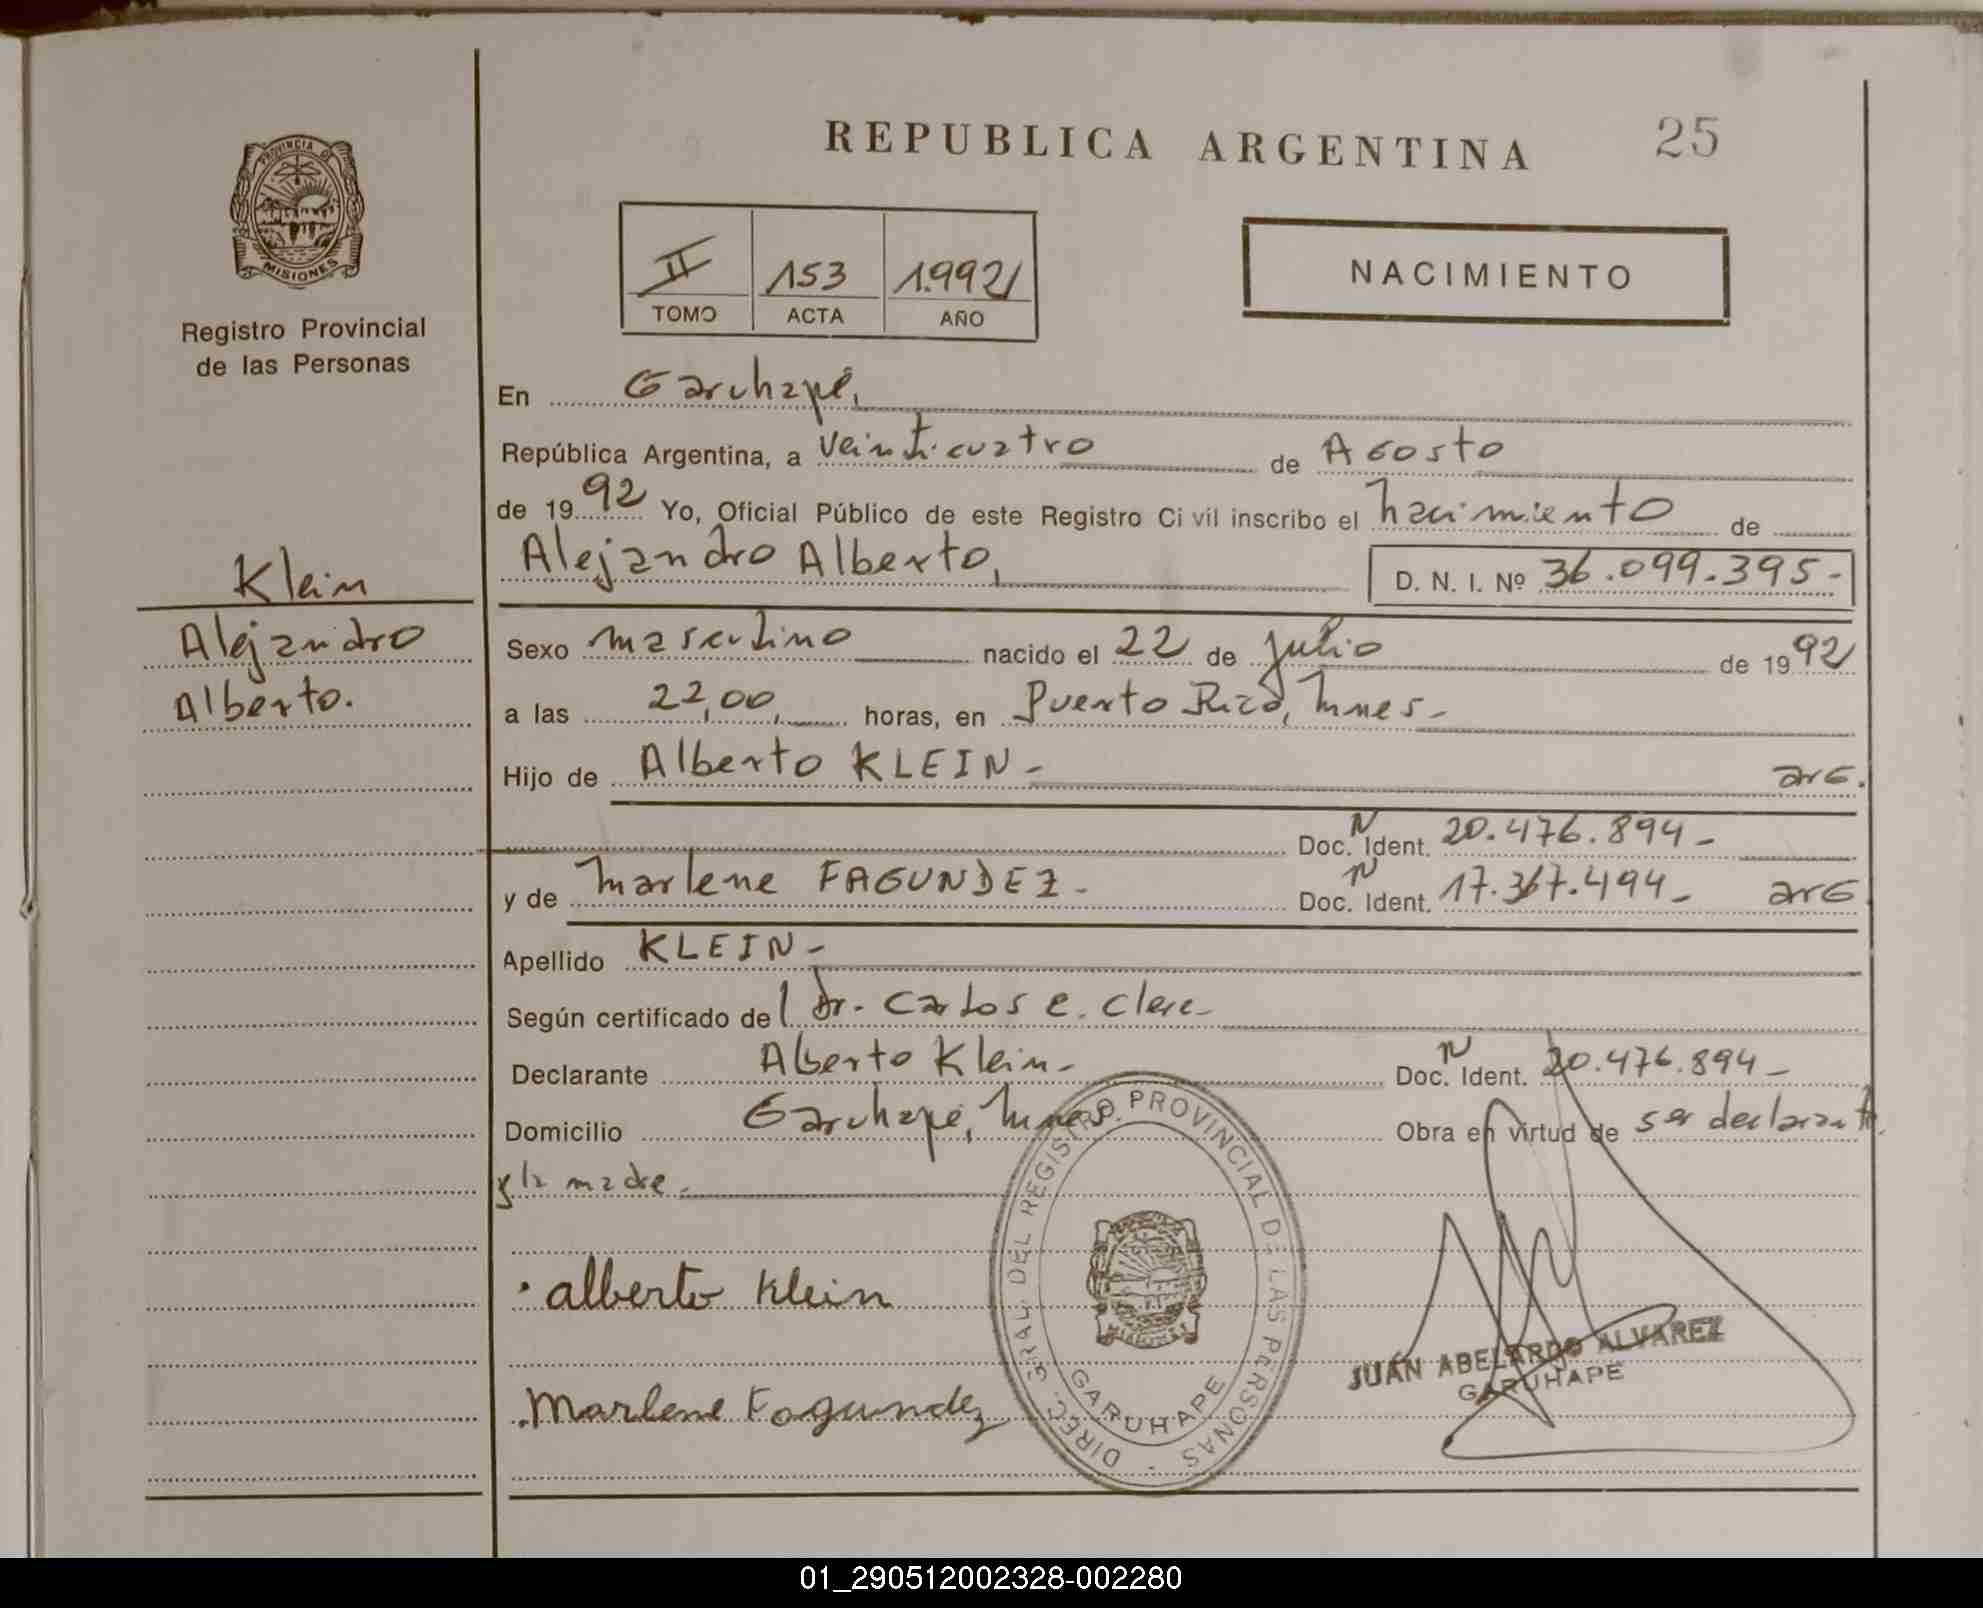 REPUBLICA ARGENTINA 25
PROVINCIA DE
MISIONES
Registro Provincial
de las Personas
II 153 1.992
TOMO ACTA AÑO
NACIMIENTO
En Garuhapé,
República Argentina, a Veinticuatro de Agosto
de 1992 Yo, Oficial Público de este Registro Civil inscribo el nacimiento de
Alejandro Alberto, D. N. I. Nº 36.099.395-
Klein
Alejandro
Alberto.
Sexo masculino nacido el 22 de julio de 1992
a las 22,00, horas, en Puerto Rico, Mnes-
Hijo de Alberto KLEIN- arg.
Doc. N Ident. 20.476.894-
y de Marlene FAGUNDEZ- Doc. N Ident. 17.367.494- arg
Apellido KLEIN-
Según certificado del Dr. Carlos e.
Declarante Alberto Klein- Doc. N Ident. 20.476.894-
Domicilio Garuhapé, Mnes. Obra en virtud de ser declarante
y la madre-
alberto Klein
Marlene Fagundez
DIREC. GRAL. DEL REGISTRO PROVINCIAL DE LAS PERSONAS -
GARUHAPE
JUAN ABELARDO ALVAREZ
GARUHAPE
01_290512002328-002280